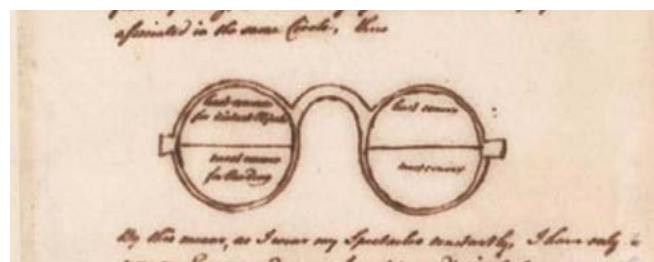 associated in the same Circle, thus
least convex
for distant Objects
least convex
most convex
for Reading
most convex
By this means, as I wear my Spectacles constantly, I have only